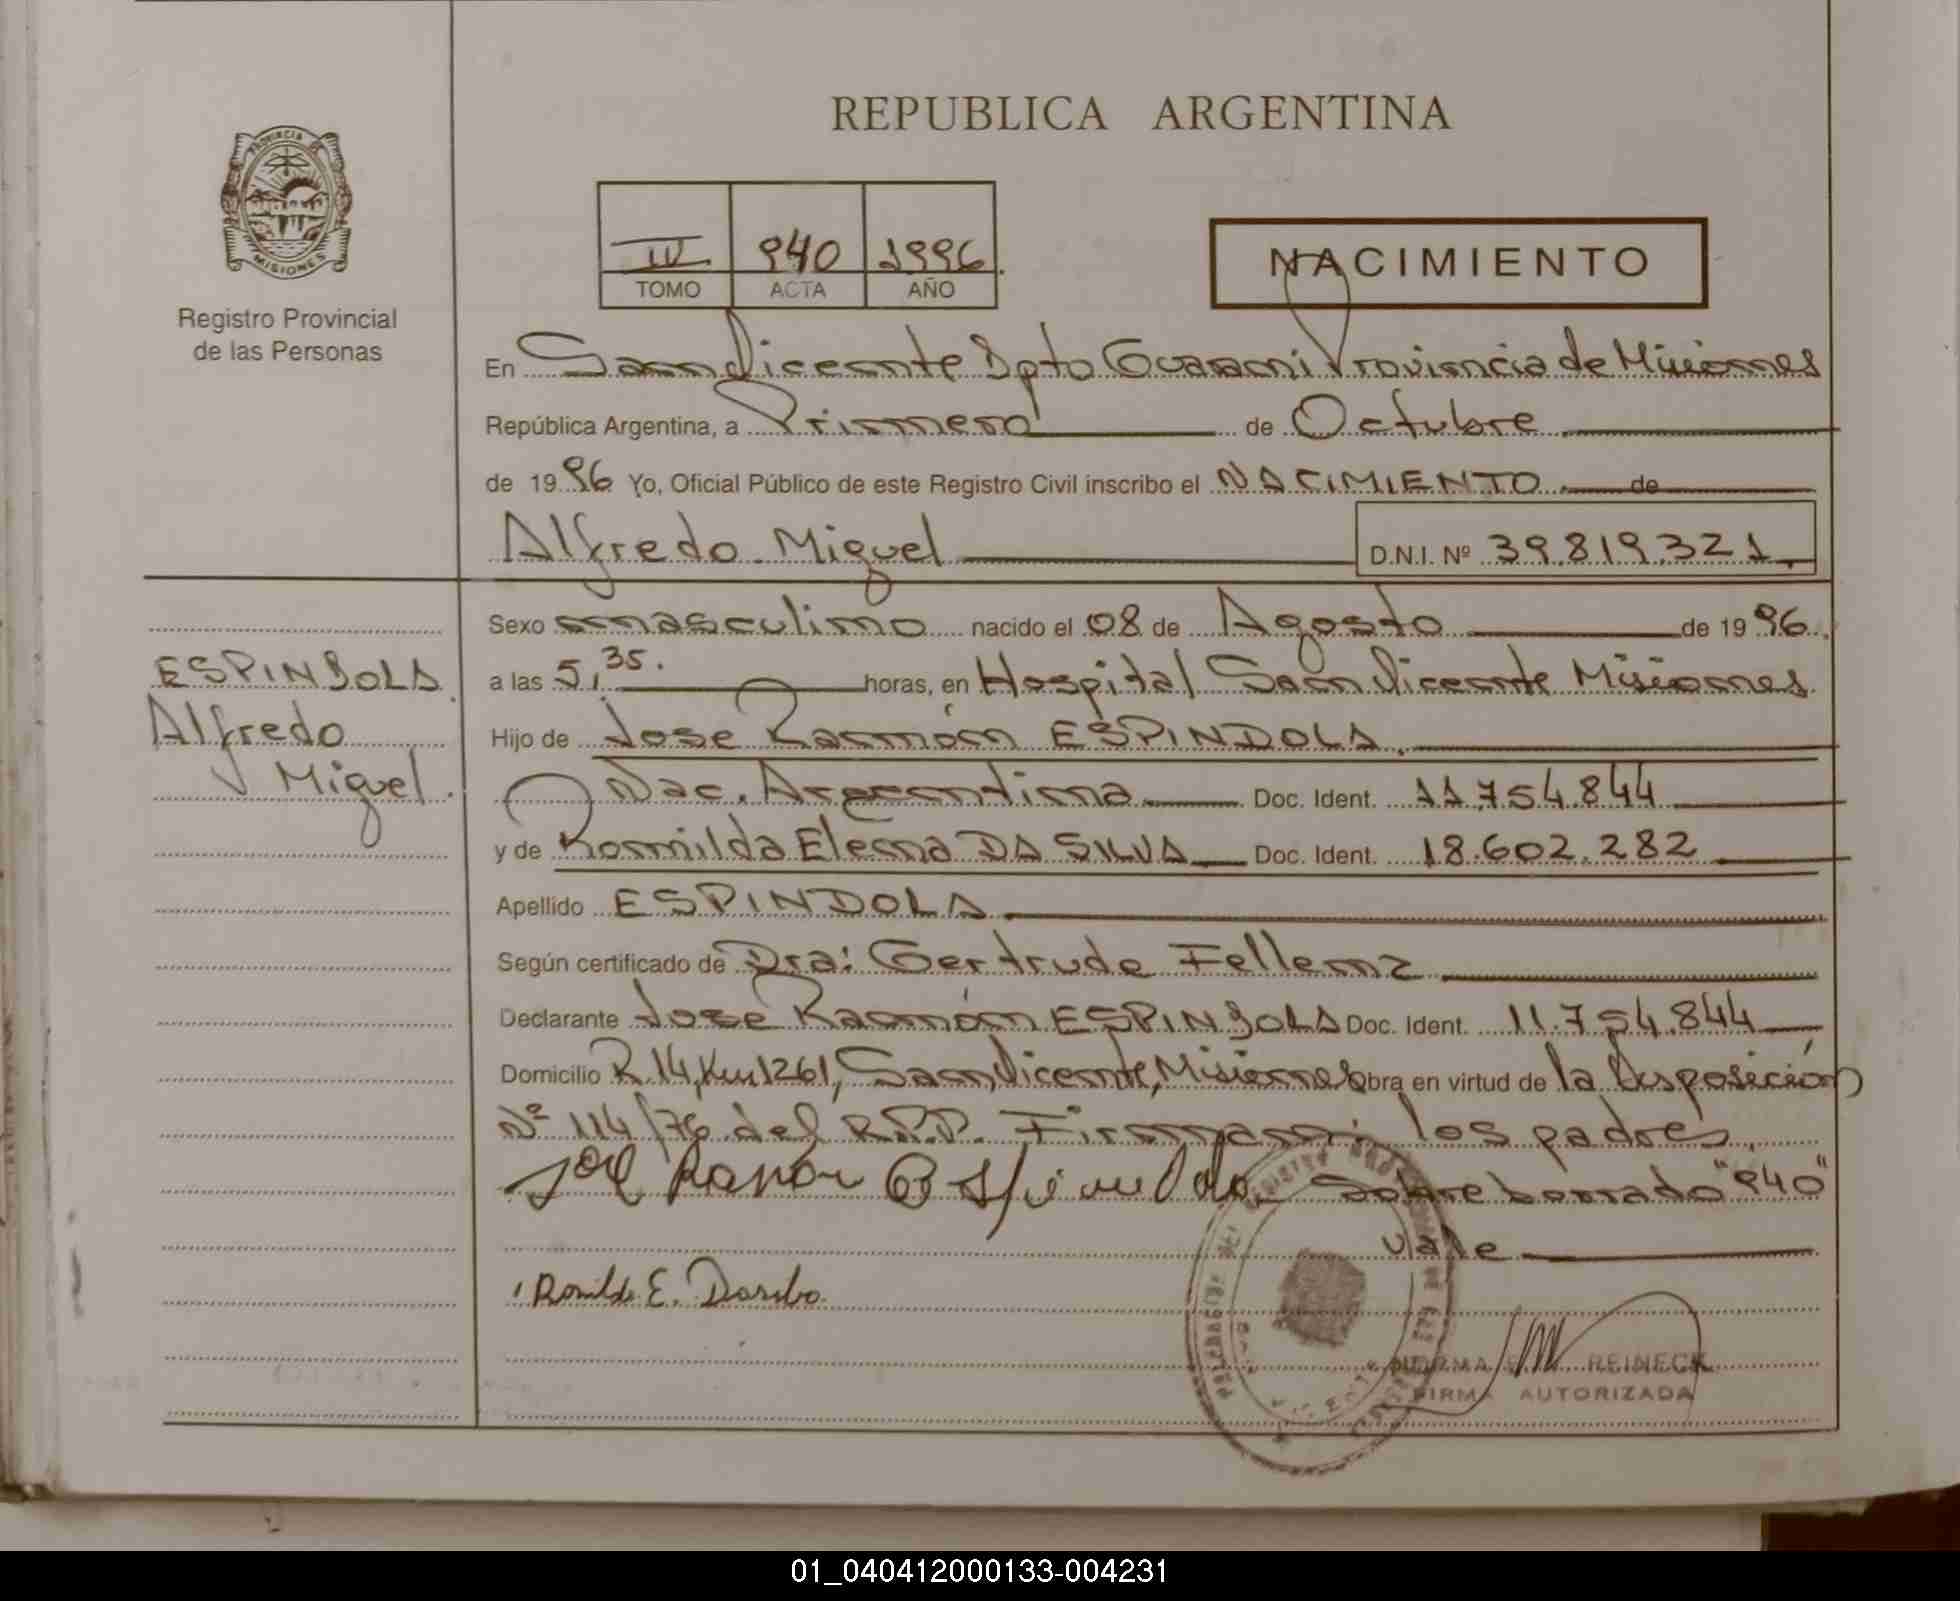 REPUBLICA ARGENTINA
PROVINCIA DE
MISIONES
Registro Provincial
de las Personas
IV 940 1996
TOMO ACTA AÑO
NACIMIENTO
En San Vicente Dpto Guarani Provincia de Misiones
República Argentina, a Primero de Octubre
de 1996 Yo, Oficial Público de este Registro Civil inscribo el NACIMIENTO de
Alfredo Miguel D.N.I. Nº 39.819.321
Sexo masculino nacido el 08 de Agosto de 1996
a las 5,35. horas, en Hospital San Vicente Misiones
Hijo de Jose Ramón ESPINDOLA
Nac. Argentina Doc. Ident. 11.754.844
y de Romilda Elena DA SILVA Doc. Ident. 18.602.282
Apellido ESPINDOLA
Según certificado de Dra: Gertrude Fellenz
Declarante Jose Ramón ESPINDOLA Doc. Ident. 11.754.844
Domicilio R.14, Km 1261, San Vicente, Misiones Obra en virtud de la Disposición
Nº 114/76 del R.P.P. Firman: los padres.
Jose Ramon Espindola Sobre borrado "940"
Vale
Romilda E. Dasilva
NORMA REINECK
FIRMA AUTORIZADA
ESPINDOLA
Alfredo
Miguel.
01_040412000133-004231